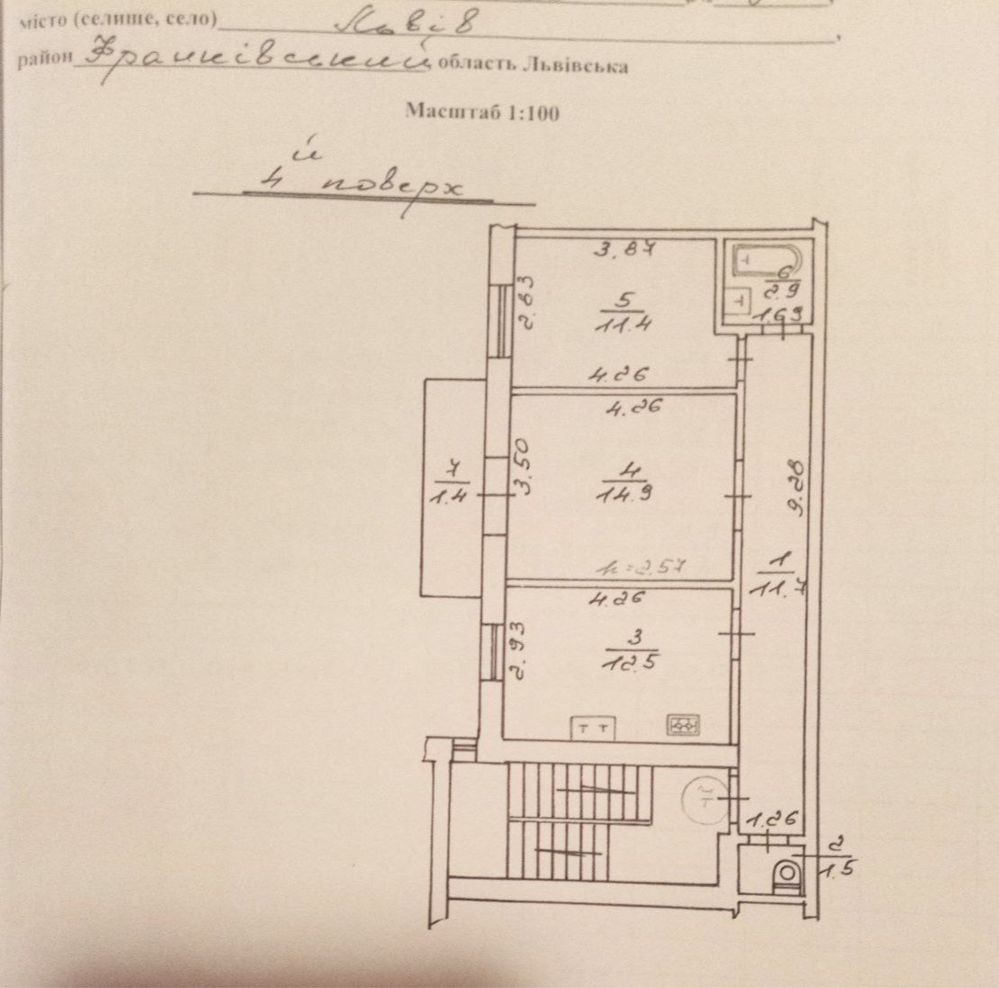 місто (селище, село) Львів,
район Франківський область Львівська
Масштаб 1:100
й
4 поверх
3.87
6
2.9
1.69
2.83
5
11.4
4.26
4.26
7
1.4
3.50
4
14.9
9.28
h=2.57
1
11.7
4.26
2.93
3
12.5
1.26
2
1.5